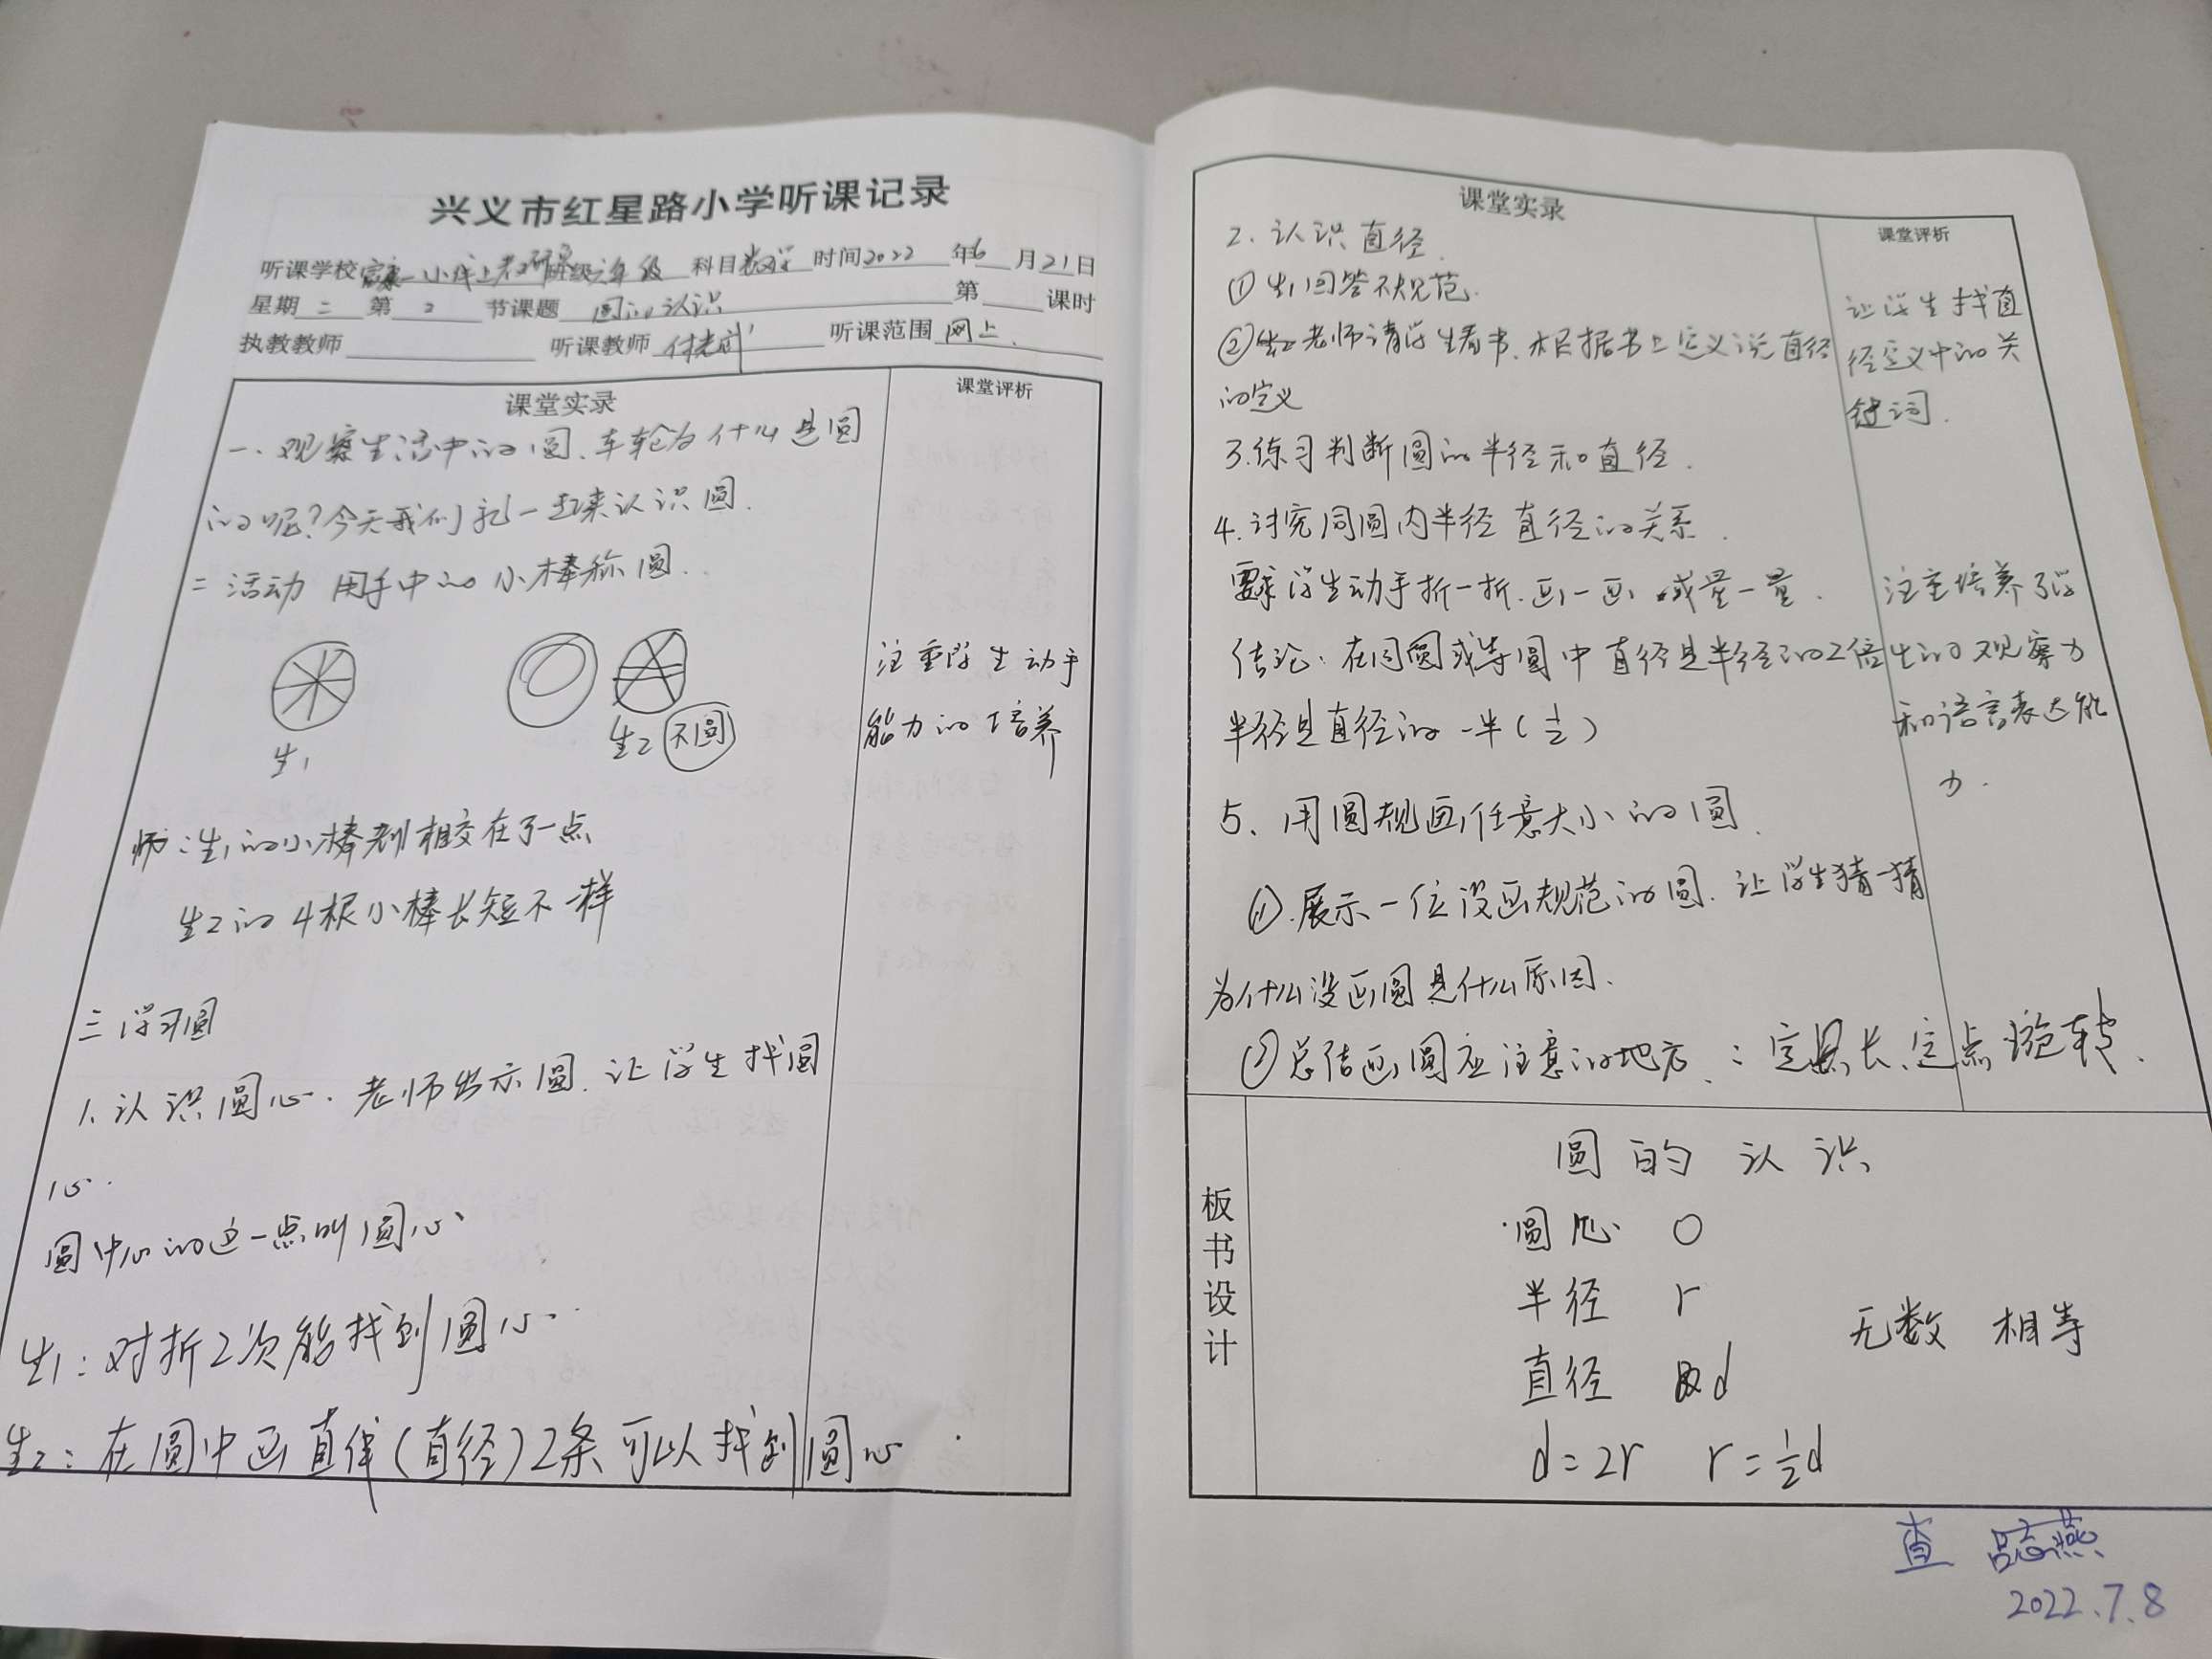 兴义市红星路小学听课记录
听课学校 一小线上 班级 六年级 科目 数学 时间 2022 年 6 月 21 日
星期 二 第 2 节课题 圆的认识 第 课时
执教教师 听课教师 听课范围 网上.
课堂实录
课堂评析
一、观察生活中的圆、车轮为什么是圆
的呢?今天我们就一起来认识圆.
二 活动 用手中的小棒称圆.
生1
生2 不圆
注重学生动手
能力的培养
师:生1的小棒都相交在了一点
生2的4根小棒长短不一样
三 学习圆
1. 认识圆心. 老师出示圆. 让学生找圆
心.
圆中心的这一点叫圆心、
生1:对折2次能找到圆心.
生2:在圆中画直径(直径)2条可以找到圆心.
课堂实录
课堂评析
2. 认识直径.
① 生1回答不规范.
② 老师请学生看书、根据书上定义说直径
的定义
让学生找直
径定义中的关
键词.
3. 练习判断圆的半径和直径.
4. 讨究同圆内半径 直径的关系.
要求学生动手折一折、画一画、或量一量.
结论:在同圆或等圆中直径是半径的2倍
半径是直径的一半(1/2)
注重培养了学
生的观察力
和语言表达能
力.
5、用圆规画任意大小的圆.
①.展示一位没画规范的圆. 让学生猜一猜
为什么没画圆是什么原因.
②总结画圆应注意的地方:定长、定点 旋转.
板书设计
圆的认识
圆心 O
半径 r
直径 d
无数 相等
d=2r r=1/2d
查 吕志燕
2022.7.8